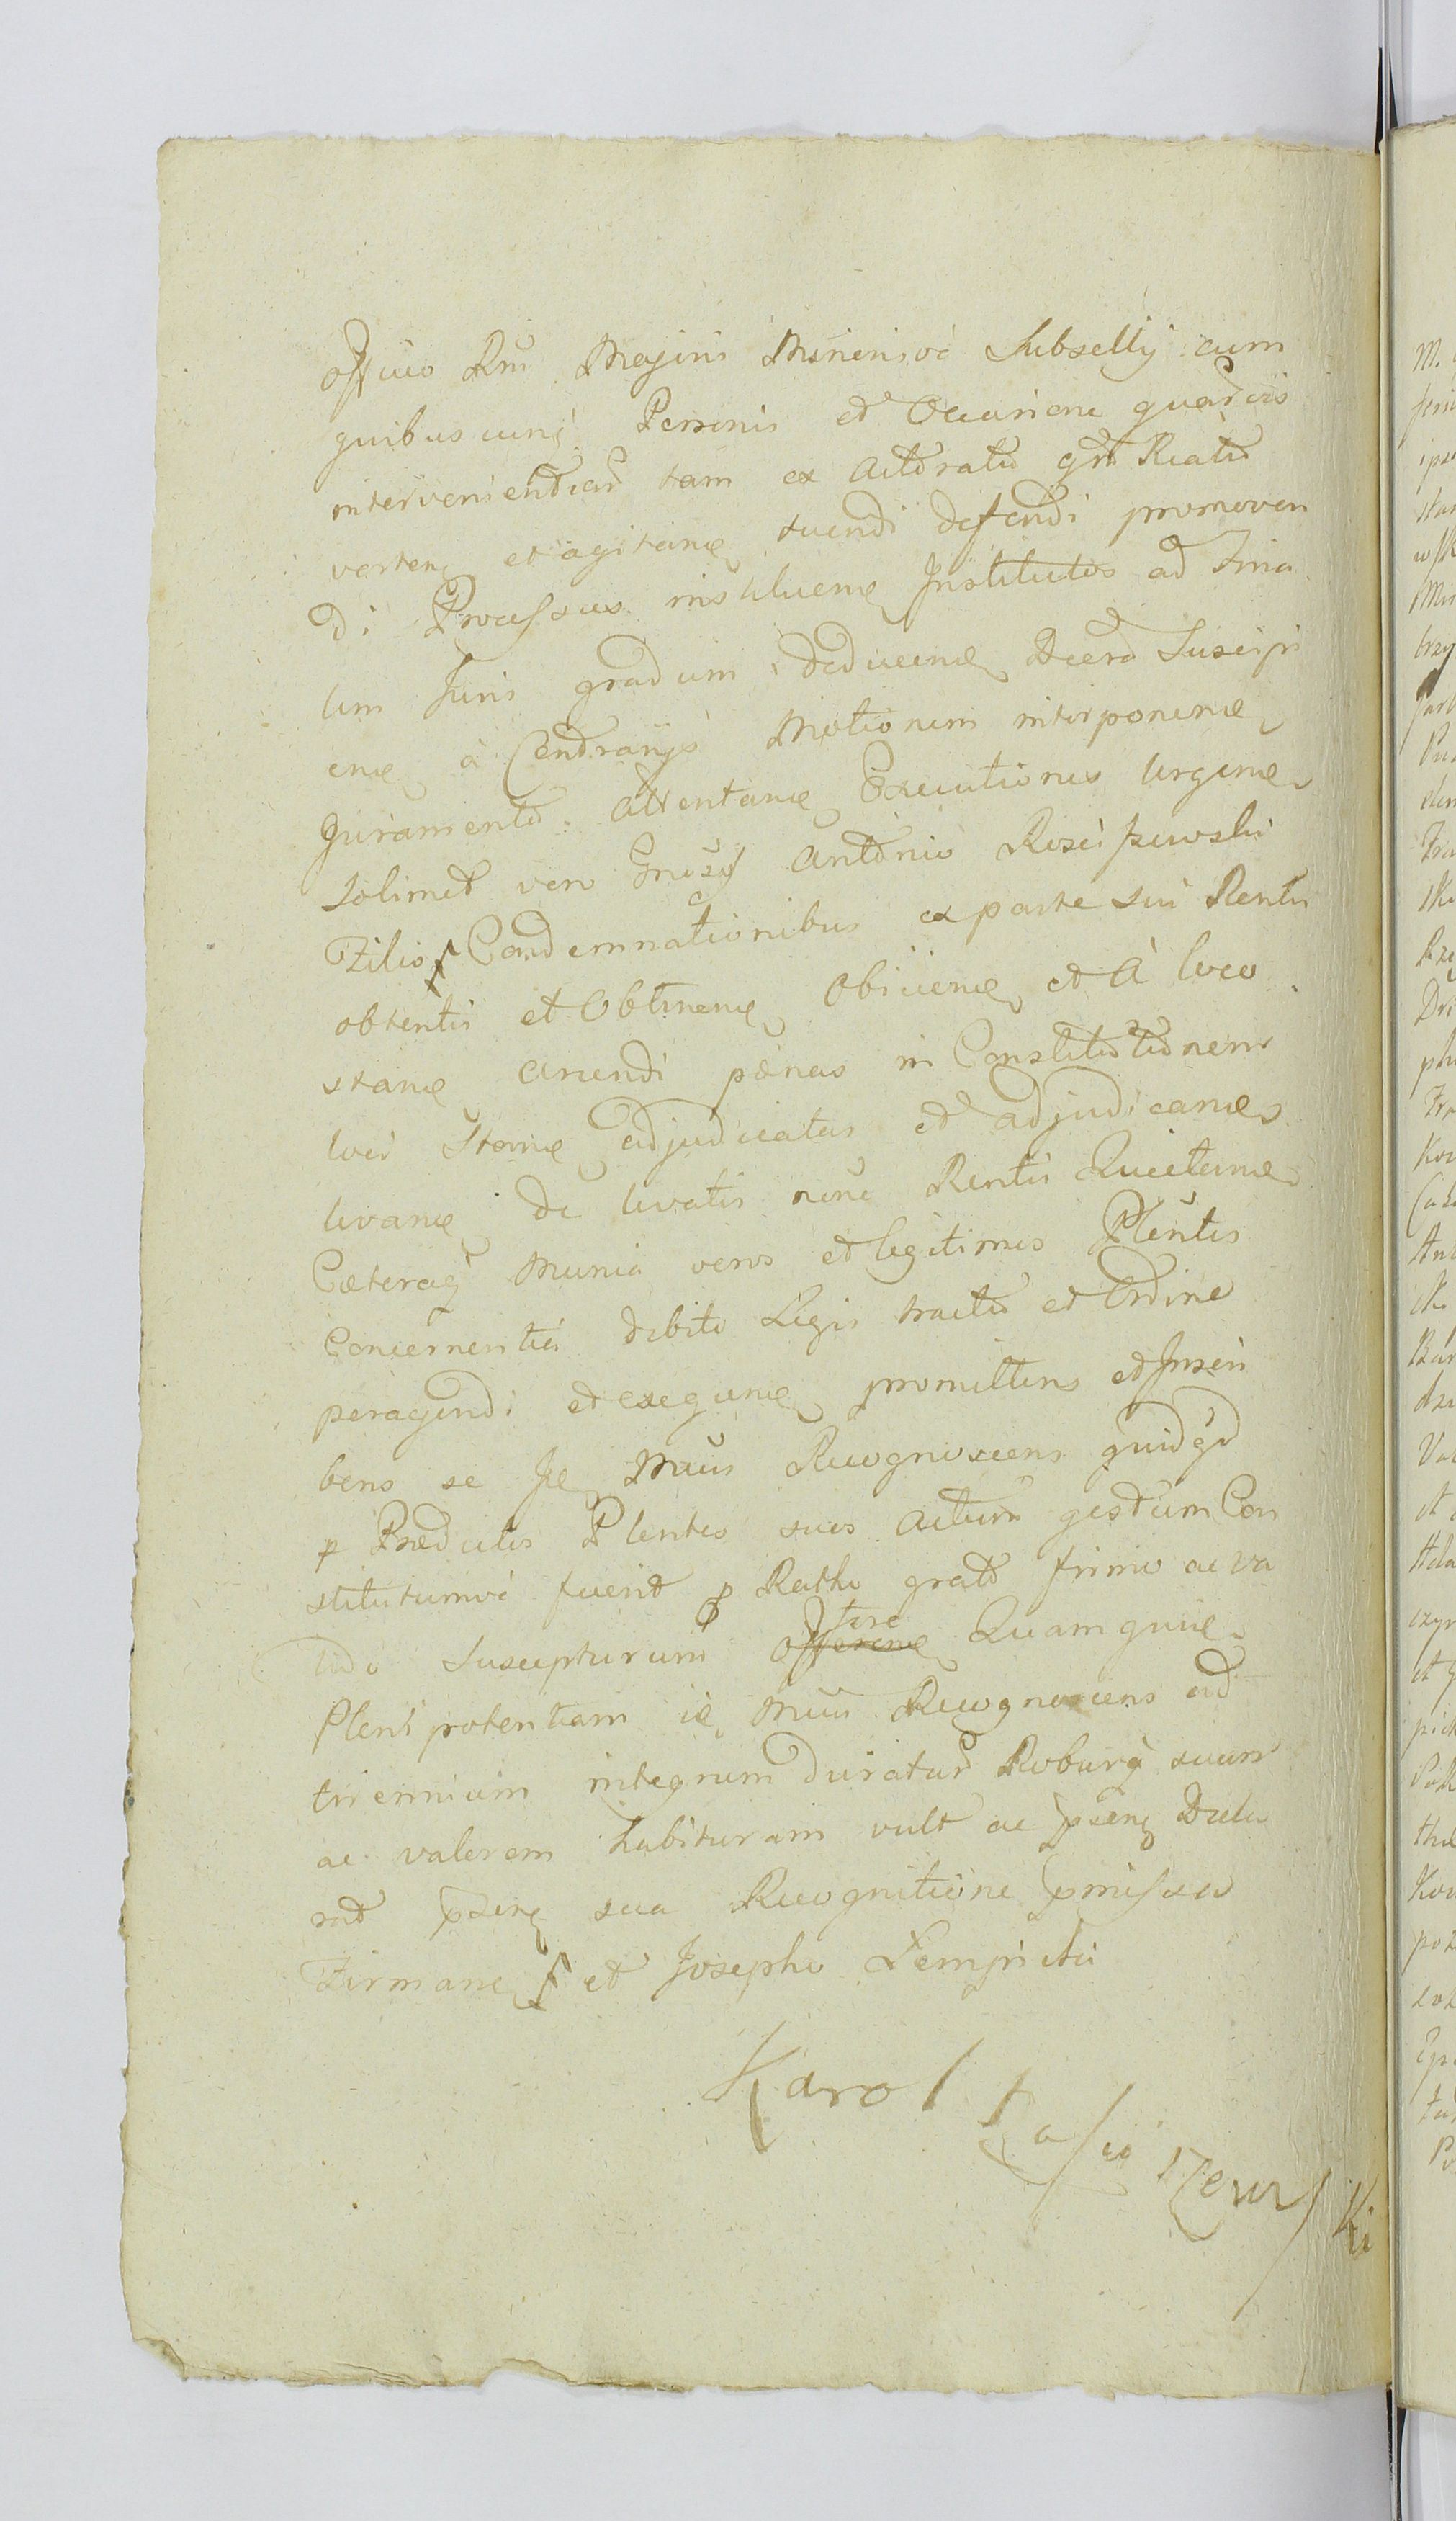 Officio Rni Majoris Minerisve Subsellij cum
quibuscunq Personis et Occasione quarvis
intervenientiar tam ex Actoratu qm Reatu
verten et agitan tuendi defendi promoven
di Processus instituen Institutos ad Fina
lem Juris gradum deducen Decre Suscipi
en à Contrarijs Motionem interponen
Juramenta Attentan Executiones Urgen
solimet vero Gnoso Antonio Rosciszewski
Filio Condemnationibus ex parte sui Rentis
obtentis et Obtinen Obijcien et à loco
stan arcendi pænas in Constitutionem
loci Stan adjudicatas et adjudican
levan de levatis nōe Rentis Quietan
Cæteraq Munia veros et legitimos Plentes
Concernentia debito Legis tractu et Ordine
peragendi et exequen promittens et Inscri
bens se Je Mcus Recognoscens quidqd
p Prædictos Plentes suos Actum gestum Con
stitutumve fuerit p Ratho grato firmo ac Va
lido Suscepturum Offerene fore Quamquie
Plenipotentiam ie Mcus Recognoscens ad
triennium integrum duraturā Roburq suum
ac valorem habituram vult ac psene Decla
rat psene sua Recognitione pmissa
Firmane et Josepho Lempicki
Karol Rościszewski